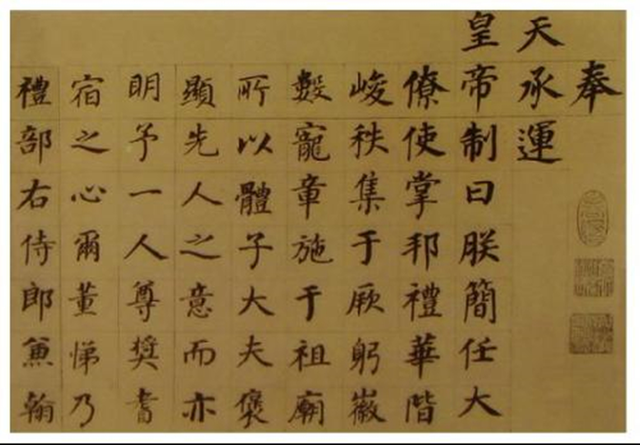 奉
天承運
皇帝制曰朕簡任大
僚使掌邦禮華階
峻秩集于厥躬徽
數寵章施于祖廟
所以體子大夫褒
顯先人之意而亦
明予一人尊奬耆
宿之心爾董悌乃
禮部右侍郎兼翰